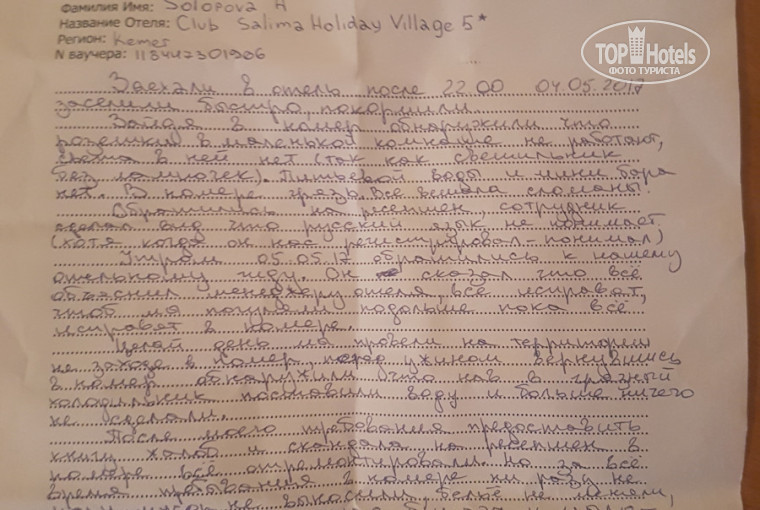 Фамилия Имя: Solopova H
Название Отеля: Club Salima Holiday Village 5*
Регион: Kemer
N ваучера: 118447301906
TOP Hotels
ФОТО ТУРИСТА
Заехали в отель после 22.00 04.05.2017
заселили быстро, покормили.
Зайдя в номер обнаружили что
розетки в маленькой комнате не работают,
света в ней нет (так как светильник
без лампочек). Питьевой воды и мини бара
нет. В номере грязь. Все вешала сломаны.
Обратились на ресепшен, сотрудник
сделал вид что русский язык не понимает
(хотя когда он нас регистрировал - понимал)
Утром 05.05.17 обратились к нашему
отельному гиду. Он сказал что всё
объяснил менеджеру отеля, всё исправят,
чтоб мы погуляли подольше пока всё
исправят в номере.
Целый день мы провели на территории
не заходя в номер, ужином вернувшись
в номер обнаружили что нам в грязный
холодильник поставили воду и больше ничего
не сделали.
После моего требования предоставить
книгу жалоб и скандала на ресепшен в
номере все отремонтировали но за всё
время пребывания в номере ни разу не
не выносили, бельё не меняли,